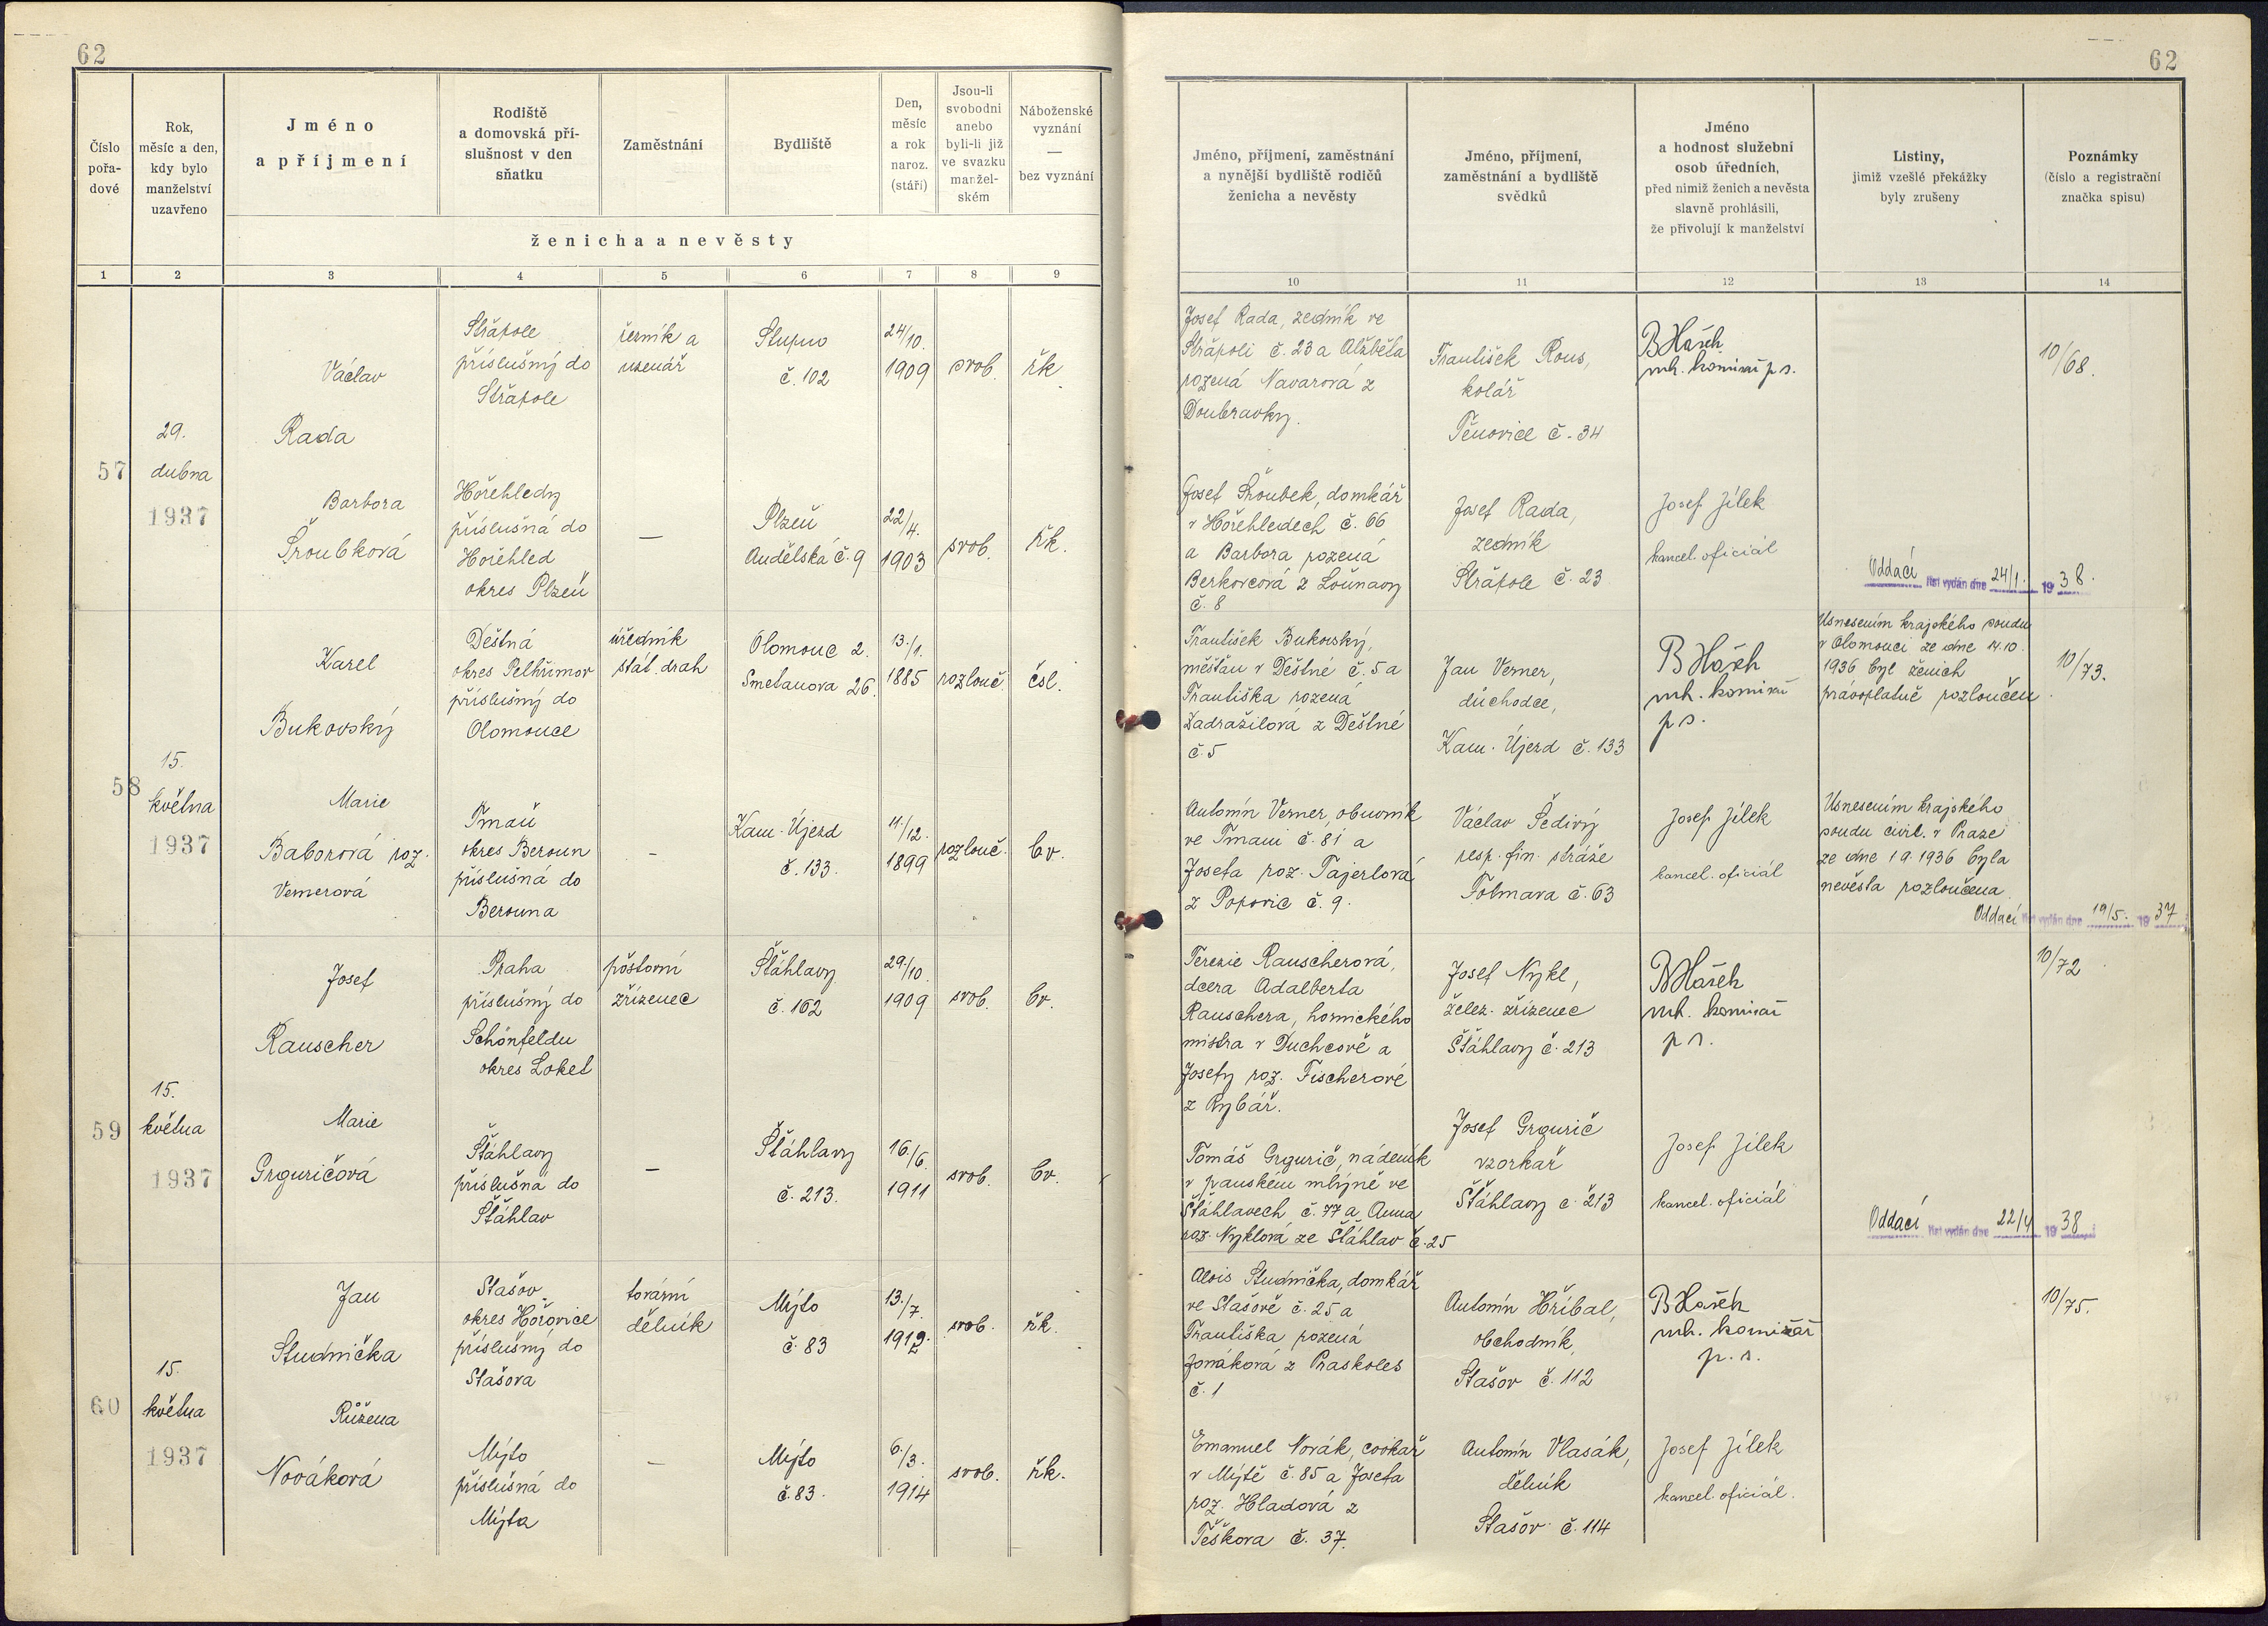 62
62
Číslo pořa-dové
Rok, měsíc a den, kdy bylo manželství uzavřeno
Jméno a příjmení
Rodiště a domovská pří-slušnost v den sňatku
Zaměstnání
Bydliště
Den, měsíc a rok naroz. (stáří)
Jsou-li svobodni anebo byli-li již ve svazku manžel-ském
Náboženské vyznání — bez vyznání
ženicha a nevěsty
Jméno, příjmení, zaměstnání a nynější bydliště rodičů ženicha a nevěsty
Jméno, příjmení, zaměstnání a bydliště svědků
Jméno a hodnost služební osob úředních, před nimiž ženich a nevěsta slavně prohlásili, že přivolují k manželství
Listiny, jimiž vzešlé překážky byly zrušeny
Poznámky (číslo a registrační značka spisu)
1 2 3 4 5 6 7 8 9 10 11 12 13 14
57
29.
dubna
1937
Václav
Rada
Střapole
příslušný do
Střapole
řezník a
uzenář
Stupno
č. 102
24/10.
1909
svob.
řk.
Josef Rada, zedník ve
Střapoli č. 23 a Alžběta
rozená Navarová z
Doubravky.
František Rous,
kolář
Těnovice č. 34
B Hašek
mh. komisař p. s.
10/68.
Barbora
Šroubková
Hořehledy
příslušná do
Hořehled
okres Plzeň
—
Plzeň
Andělská č. 9
22/4.
1903
svob.
řk.
Josef Šroubek, domkář
v Hořehledech č. 66
a Barbora rozená
Berkovcová z Louňavy
č. 8
Josef Rada,
zedník
Střapole č. 23
Josef Jílek
kancel. oficiál
Oddací list vydán dne 24/1. 1938.
58
15.
května
1937
Karel
Bukovský
Deštná
okres Pelhřimov
příslušný do
Olomouce
úředník
stát. drah
Olomouc 2.
Smetanova 26.
13./1.
1885
rozlouč.
čsl.
František Bukovský,
měšťan v Deštné č. 5 a
Františka rozená
Zadražilová z Deštné
č. 5
Jan Verner,
důchodce,
Kam. Újezd č. 133
B Hašek
mh. komisař
p. s.
Usnesením krajského soudu
v Olomouci ze dne 14.10.
1936 byl ženich
právoplatně rozloučen.
10/73.
Marie
Baborová roz.
Vernerová
Tmaň
okres Beroun
příslušná do
Berouna
—
Kam. Újezd
č. 133.
11/12.
1899
rozlouč.
bv.
Antonín Verner, obuvník
ve Tmani č. 81 a
Josefa roz. Tajerlová
z Popovic č. 9.
Václav Šedivý
resp. fin. stráže
Folmava č. 63
Josef Jílek
kancel. oficiál
Usnesením krajského
soudu civil. v Praze
ze dne 1.9.1936 byla
nevěsta rozloučena
Oddací list vydán dne 19/5. 1937
59
15.
května
1937
Josef
Rauscher
Praha
příslušný do
Schönfeldu
okres Loket
poštovní
zřízenec
Šťáhlavy
č. 162
29./10.
1909
svob.
bv.
Terezie Rauscherová,
dcera Adalberta
Rauschera, hornického
mistra v Duchcově a
Josefy roz. Fischerové
z Rybář.
Josef Nykl,
želez. zřízenec
Šťáhlavy č. 213
B Hašek
mh. komisař
p s.
10/72
Marie
Grguričová
Šťáhlavy
příslušná do
Šťáhlav
—
Šťáhlavy
č. 213.
16./6.
1911
svob.
bv.
Tomáš Grgurič, nádeník
v panském mlýně ve
Šťáhlavech č. 77 a Anna
roz. Nyklová ze Šťáhlav č. 25
Josef Grgurič
vzorkař
Šťáhlavy č. 213
Josef Jílek
kancel. oficiál
Oddací list vydán dne 22/4 1938
60
15.
května
1937
Jan
Studnička
Stašov
okres Hořovice
příslušný do
Stašova
tovární
dělník
Mýto
č. 83
13./7.
1912.
svob.
řk.
Alois Studnička, domkář
ve Stašově č. 25 a
Františka rozená
Jonáková z Praskoles
č. 1
Antonín Hříbal,
obchodník,
Stašov č. 112
B Hašek
mh. komisař
p. s.
10/75.
Růžena
Nováková
Mýto
příslušná do
Mýta
—
Mýto
č. 83.
6./3.
1914
svob.
řk.
Emanuel Novák, cvokař
v Mýtě č. 85 a Josefa
roz. Hladová z
Těškova č. 37.
Antonín Vlasák,
dělník
Stašov č. 114
Josef Jílek
kancel. oficiál.